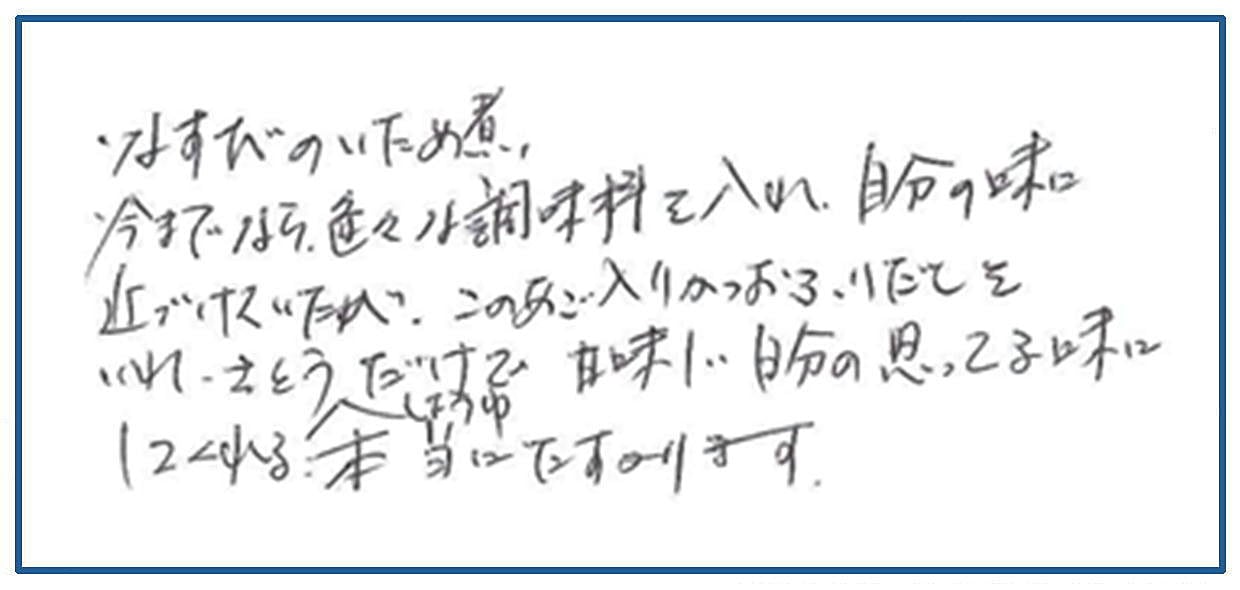 ・なすびのいため煮、
今までなら、色々な調味料を入れ、自分の味に
近づけていたが、このあご入りかつおふりだしを
いれ、さとうだけで甘味し、自分の思ってる味に
しょうゆ
してくれる。本当にたすかります。